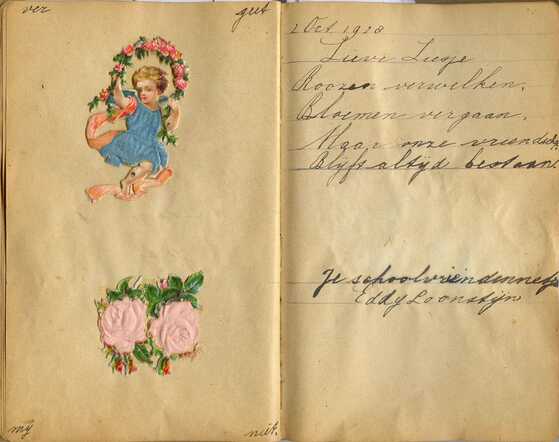 ver geet
my niet.
2 Oct. 1928
Lieve Liesje
Roozen verwelken,
Bloemen vergaan,
Maar onze vriendschap
Blijft altijd bestaan!
Je schoolvriendinnetje
Eddy Loonstijn